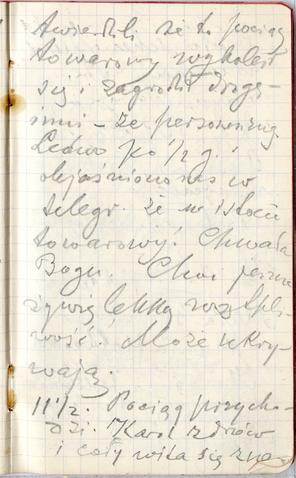 twierdzili że to pociąg
towarowy wykoleił
się i zagrodził drogę –
inni – że personenzug.
Ledwo po 1/2 g.
objaśniono nas w
telegr. że w istocie
towarowy! Chwała
Bogu. Choć jeszcze
żywię lekką wątpli-
wość. Może ukry-
wają.
11 1/2. Pociąg przycho-
dzi. Karol zdrów
i cały wita się zna-